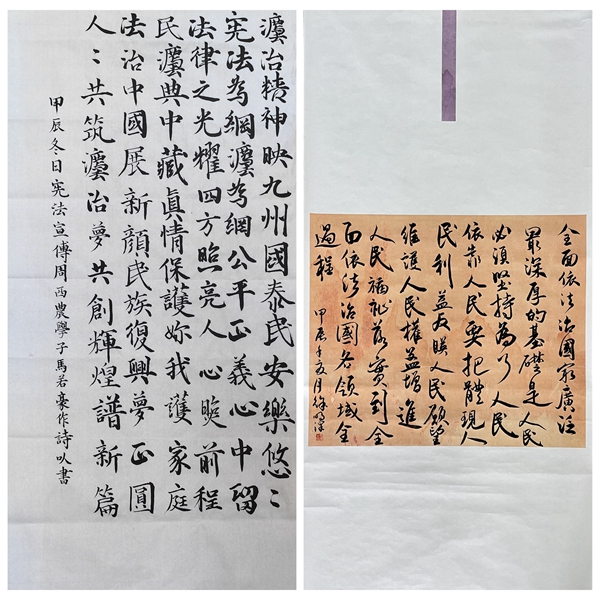 灋治精神映九州國泰民安樂悠〻
宪法為綱灋為網公平正義心中留
法律之光耀四方照亮人心暖前程
民灋典中藏眞情保護妳我護家庭
法治中國展新顏民族復興夢正圓
人〻共筑灋治夢共創輝煌譜新篇
甲辰冬日宪法宣傳周西農學子馬若豪作詩㕥書
全面依法治國最廣泛
最深厚的基礎是人民
必須堅持為了人民
依靠人民要把體現人
民利益反映人民願望
維護人民權益增進
人民福祉落實到全
面依法治國各領域全
過程
甲辰年